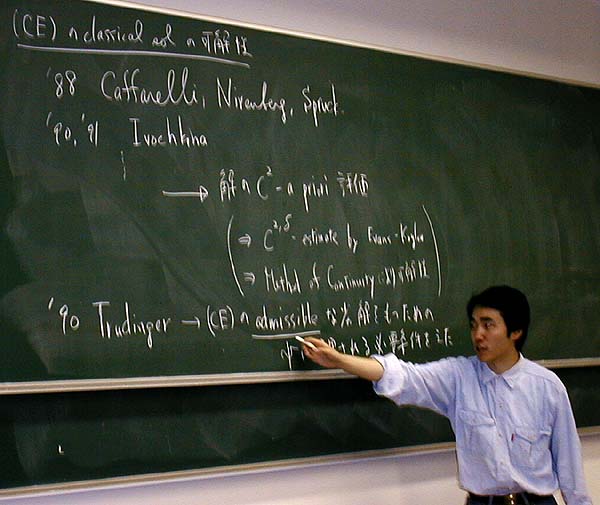 (CE) の classical sol の 可解性
'88 Caffarelli, Nirenberg, Spruck.
'90, '91 Ivochkina
→ 解の C² - a priori 評価
⇒ C²,δ - estimate by Evans-Krylov
⇒ Method of Continuity 可解性
'90 Trudinger → (CE) の admissible な 解をもつための
必要条件を